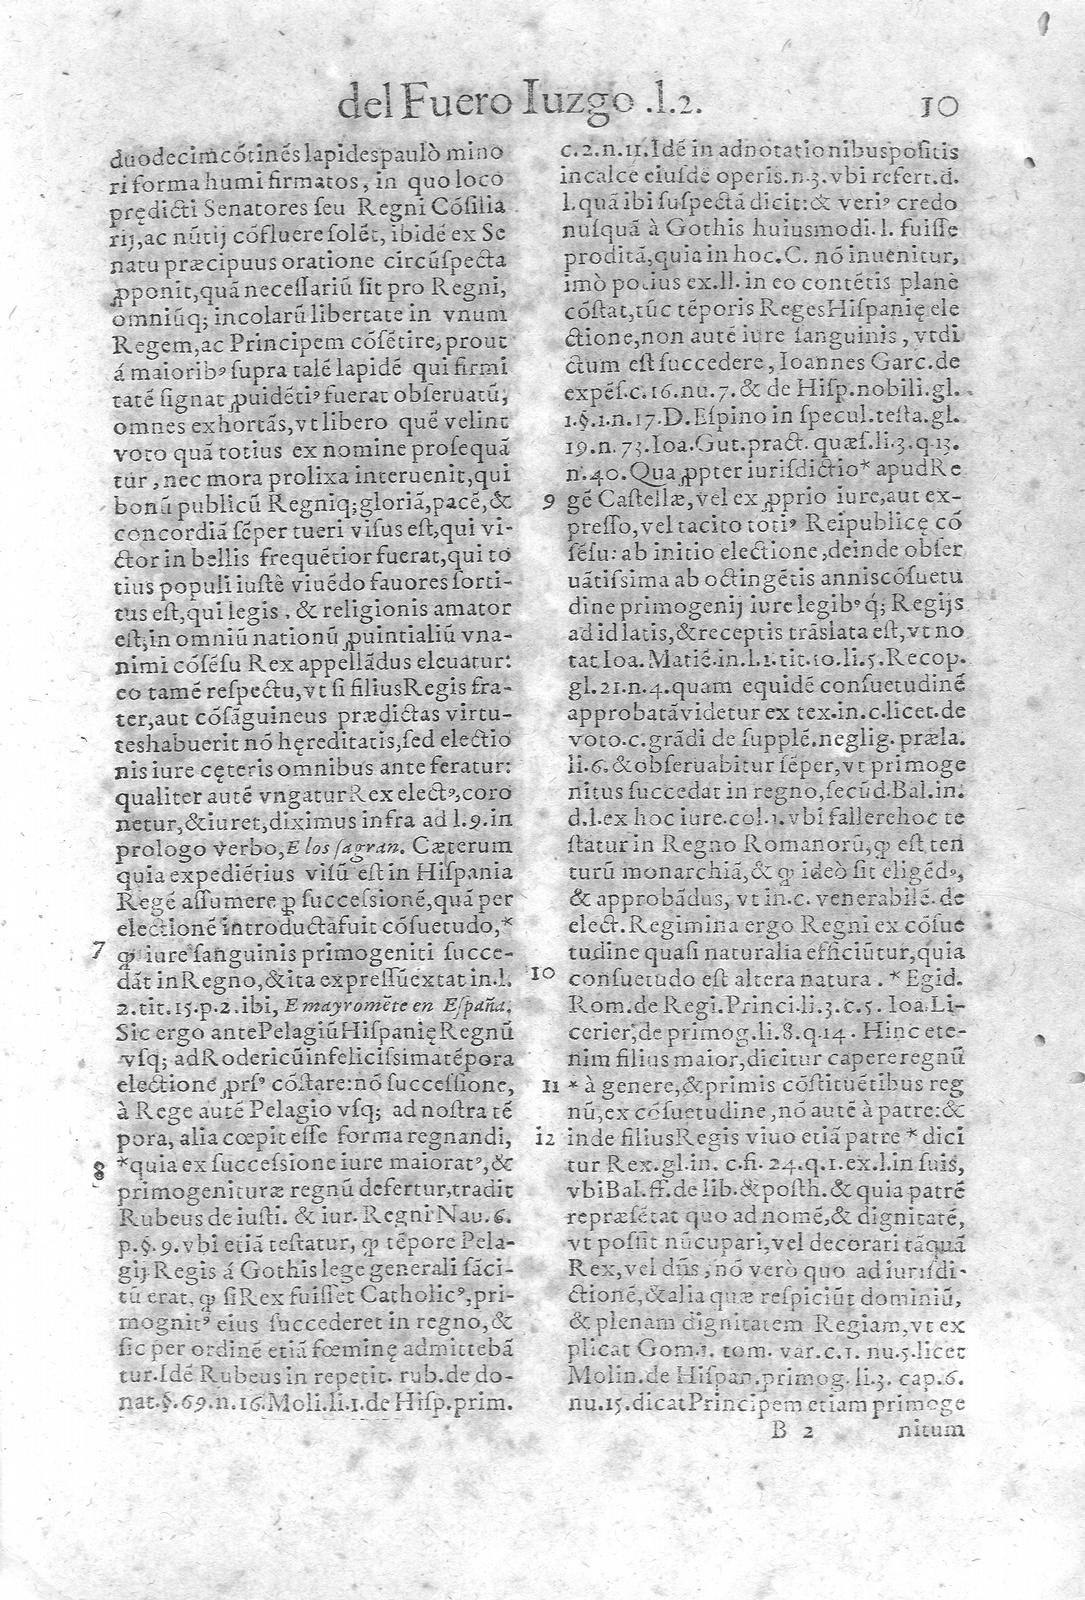 del Fuero Iuzgo .l.2. 10
duodecim cõtinẽs lapides paulò mino
ri forma humi firmatos, in quo loco
prędicti Senatores seu Regni Cõsilia
rij, ac nũtij cõfluere solẽt, ibidẽ ex Se
natu præcipuus oratione circũspecta
ꝓponit, quã necessariũ sit pro Regni,
omniũq; incolarũ libertate in vnum
Regem, ac Principem cõsẽtire, prout
á maiorib⁹ supra talẽ lapidẽ qui firmi
tatẽ signat ꝓuidẽti⁹ fuerat obseruatũ,
omnes exhortãs, vt libero quẽ velint
voto quã totius ex nomine prosequã
tur, nec mora prolixa interuenit, qui
bonũ publicũ Regniq; gloriã, pacẽ, &
concordiã sẽper tueri visus est, qui vi-
ctor in bellis frequẽtior fuerat, qui to
tius populi iustè viuẽdo fauores sorti-
tus est, qui legis, & religionis amator
est; in omniũ nationũ ꝓuintialiũ vna-
nimi cõsẽsu Rex appellãdus eleuatur:
eo tamẽ respectu, vt si filius Regis fra-
ter, aut cõsãguineus prædictas virtu-
tes habuerit nõ hęreditatis, sed electio
nis iure cęteris omnibus ante feratur:
qualiter autẽ vngatur Rex elect⁹, coro
netur, & iuret, diximus infra ad l.9. in
prologo verbo, E los sagran. Cæterum
quia expediẽtius visũ est in Hispania
Regẽ assumere ꝑ successionẽ, quã per
electionẽ introducta fuit cõsuetudo, *
7 ꝙ iure sanguinis primogeniti succe-
dãt in Regno, & ita expressũ extat in.l.
2.tit.15.p.2.ibi, E mayromẽte en España.
Sic ergo ante Pelagiũ Hispanię Regnũ
vsq; ad Rodericũ infelicissima tẽpora
electione ꝓrs⁹ cõstare: nõ successione,
à Rege autẽ Pelagio vsq; ad nostra tẽ
pora, alia cœpit esse forma regnandi,
8 *quia ex successione iure maiorat⁹, &
primogenituræ regnũ defertur, tradit
Rubeus de iusti. & iur. Regni Nau.6.
p.§.9. vbi etiã testatur, ꝙ tẽpore Pela-
gij Regis á Gothis lege generali sãci-
tũ erat, ꝙ si Rex fuisset Catholic⁹, pri-
mognit⁹ eius succederet in regno, &
sic per ordinẽ etiã fœminę admittebã
tur. Idẽ Rubeus in repetit. rub. de do-
nat.§.69.n.16. Moli.li.1.de Hisp.prim.
c.2.n.11. Idẽ in adnotationibus positis
in calce eiusdẽ operis.n.3. vbi refert.d.
l. quã ibi suspectã dicit: & veri⁹ credo
nusquã à Gothis huiusmodi.l. fuisse
proditã, quia in hoc.C. nõ inuenitur,
imò potius ex.ll. in eo contẽtis planè
cõstat, tũc tẽporis Reges Hispanię ele
ctione, non autẽ iure sanguinis, vt di
ctum est succedere, Ioannes Garc. de
expẽs.c.16.nu.7.& de Hisp.nobili.gl.
1.§.1.n.17.D.Espino in specul.testa.gl.
19.n.73.Ioa.Gut.pract.quæs.li.3.q.13.
n.40. Qua ꝓpter iurisdictio* apud Re
9 gẽ Castellæ, vel ex ꝓprio iure, aut ex-
presso, vel tacito toti⁹ Reipublicę cõ
sẽsu: ab initio electione, deinde obser
uãtissima ab octingẽtis annis cõsuetu
dine primogenij iure legib⁹ q́; Regijs
ad id latis, & receptis trãslata est, vt no
tat Ioa. Matiẽ.in.l.1.tit.10.li.5.Recop.
gl.21.n.4. quam equidẽ consuetudinẽ
approbatã videtur ex tex.in.c.licet.de
voto.c.grãdi de supplẽ.neglig.præla.
li.6.& obseruabitur sẽper, vt primoge
nitus succedat in regno, secũd.Bal.in.
d.l.ex hoc iure.col.1. vbi fallere hoc te
statur in Regno Romanorũ, ꝙ est ten
turũ monarchiã, & ꝙ ideò sit eligẽd⁹,
& approbãdus, vt in.c. venerabilẽ.de
elect. Regimina ergo Regni ex cõsue
tudine quasi naturalia efficiũtur, quia
10 consuetudo est altera natura. *Egid.
Rom.de Regi.Princi.li.3.c.5. Ioa.Li-
cerier, de primog.li.8.q.14. Hinc ete-
nim filius maior, dicitur capere regnũ
11 * à genere, & primis cõstituẽtibus reg
nũ, ex cõsuetudine, nõ autẽ à patre: &
12 inde filius Regis viuo etiã patre * dici
tur Rex.gl.in. c.fi.24.q.1.ex.l.in suis,
vbi Bal.ff.de lib.& posth.& quia patrẽ
repræsẽtat quo ad nomẽ, & dignitatẽ,
vt possit nũcupari, vel decorari tãquã
Rex, vel dñs, nõ verò quo ad iurisdi-
ctionẽ, & alia quæ respiciũt dominiũ,
& plenam dignitatem Regiam, vt ex
plicat Gom.1. tom. var.c.1. nu.5.licet
Molin.de Hispan.primog.li.3. cap.6.
nu.15.dicat Principem etiam primoge
B 2 nitum